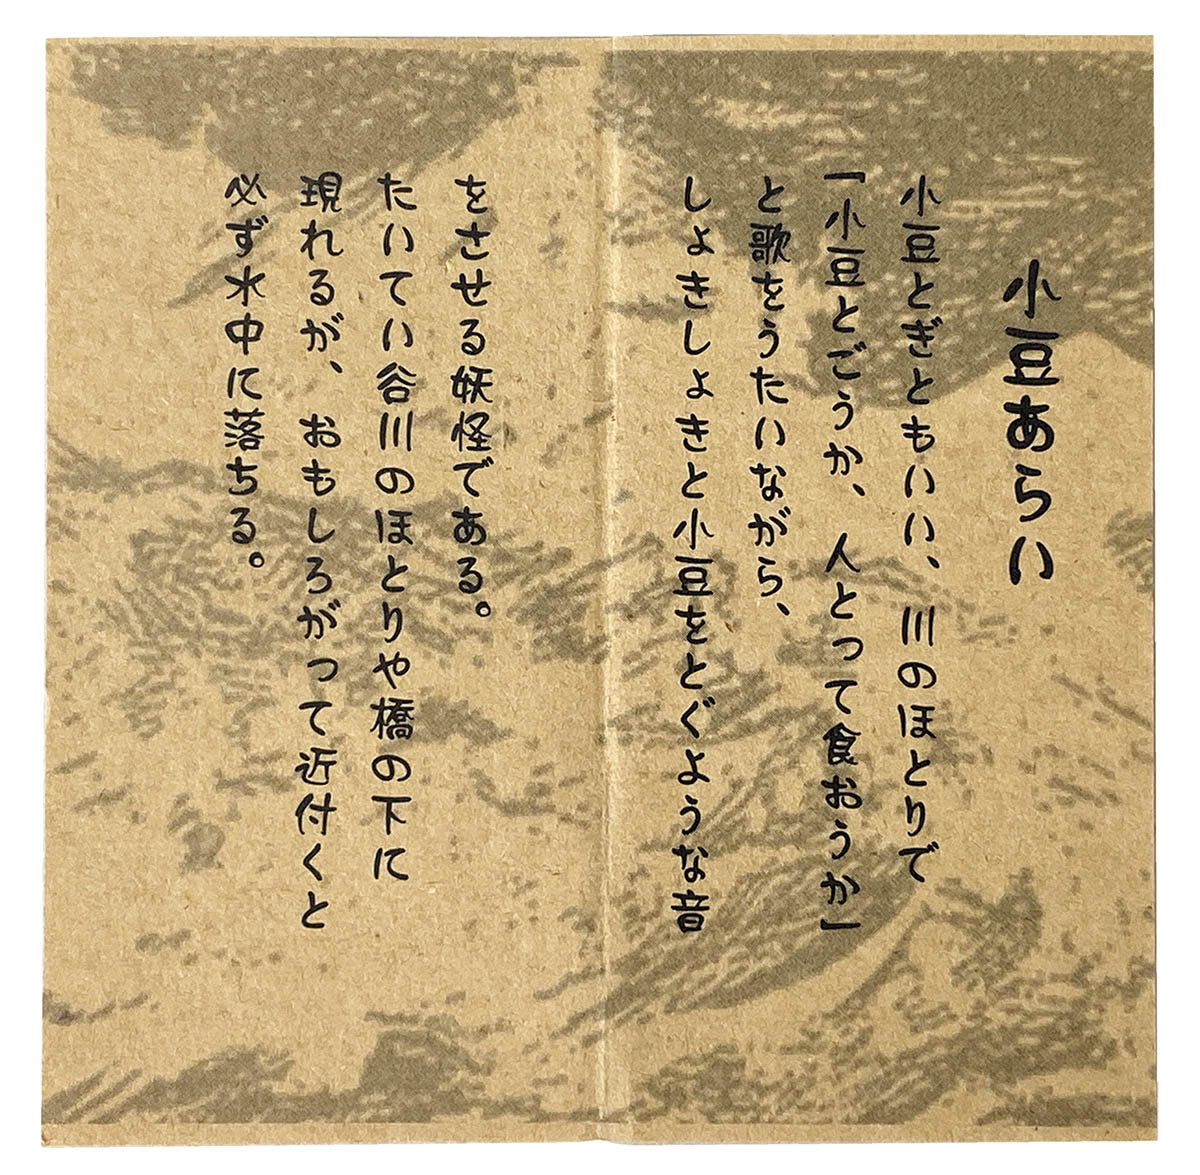 小豆あらい
小豆とぎともいい、川のほとりで
「小豆とごうか、人とって食おうか」
と歌をうたいながら、
しょきしょきと小豆をとぐような音
をさせる妖怪である。
たいてい谷川のほとりや橋の下に
現れるが、おもしろがって近付くと
必ず水中に落ちる。